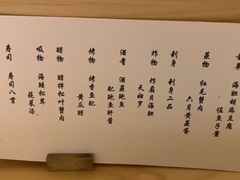 海胆胡麻豆腐
佐鱼子酱
蒸物
红毛蟹肉
六月黄蒸蛋
刺身
刺身三品
炸物
炸腐贝海胆
天妇罗
酒肴
酒蒸鲍鱼
配鲍鱼肝酱
烤物
烤香鱼配
黄瓜醋
醋物
醋拌松叶蟹肉
吸物
海鳗松茸
蔬菜汤
寿司
寿司八贯